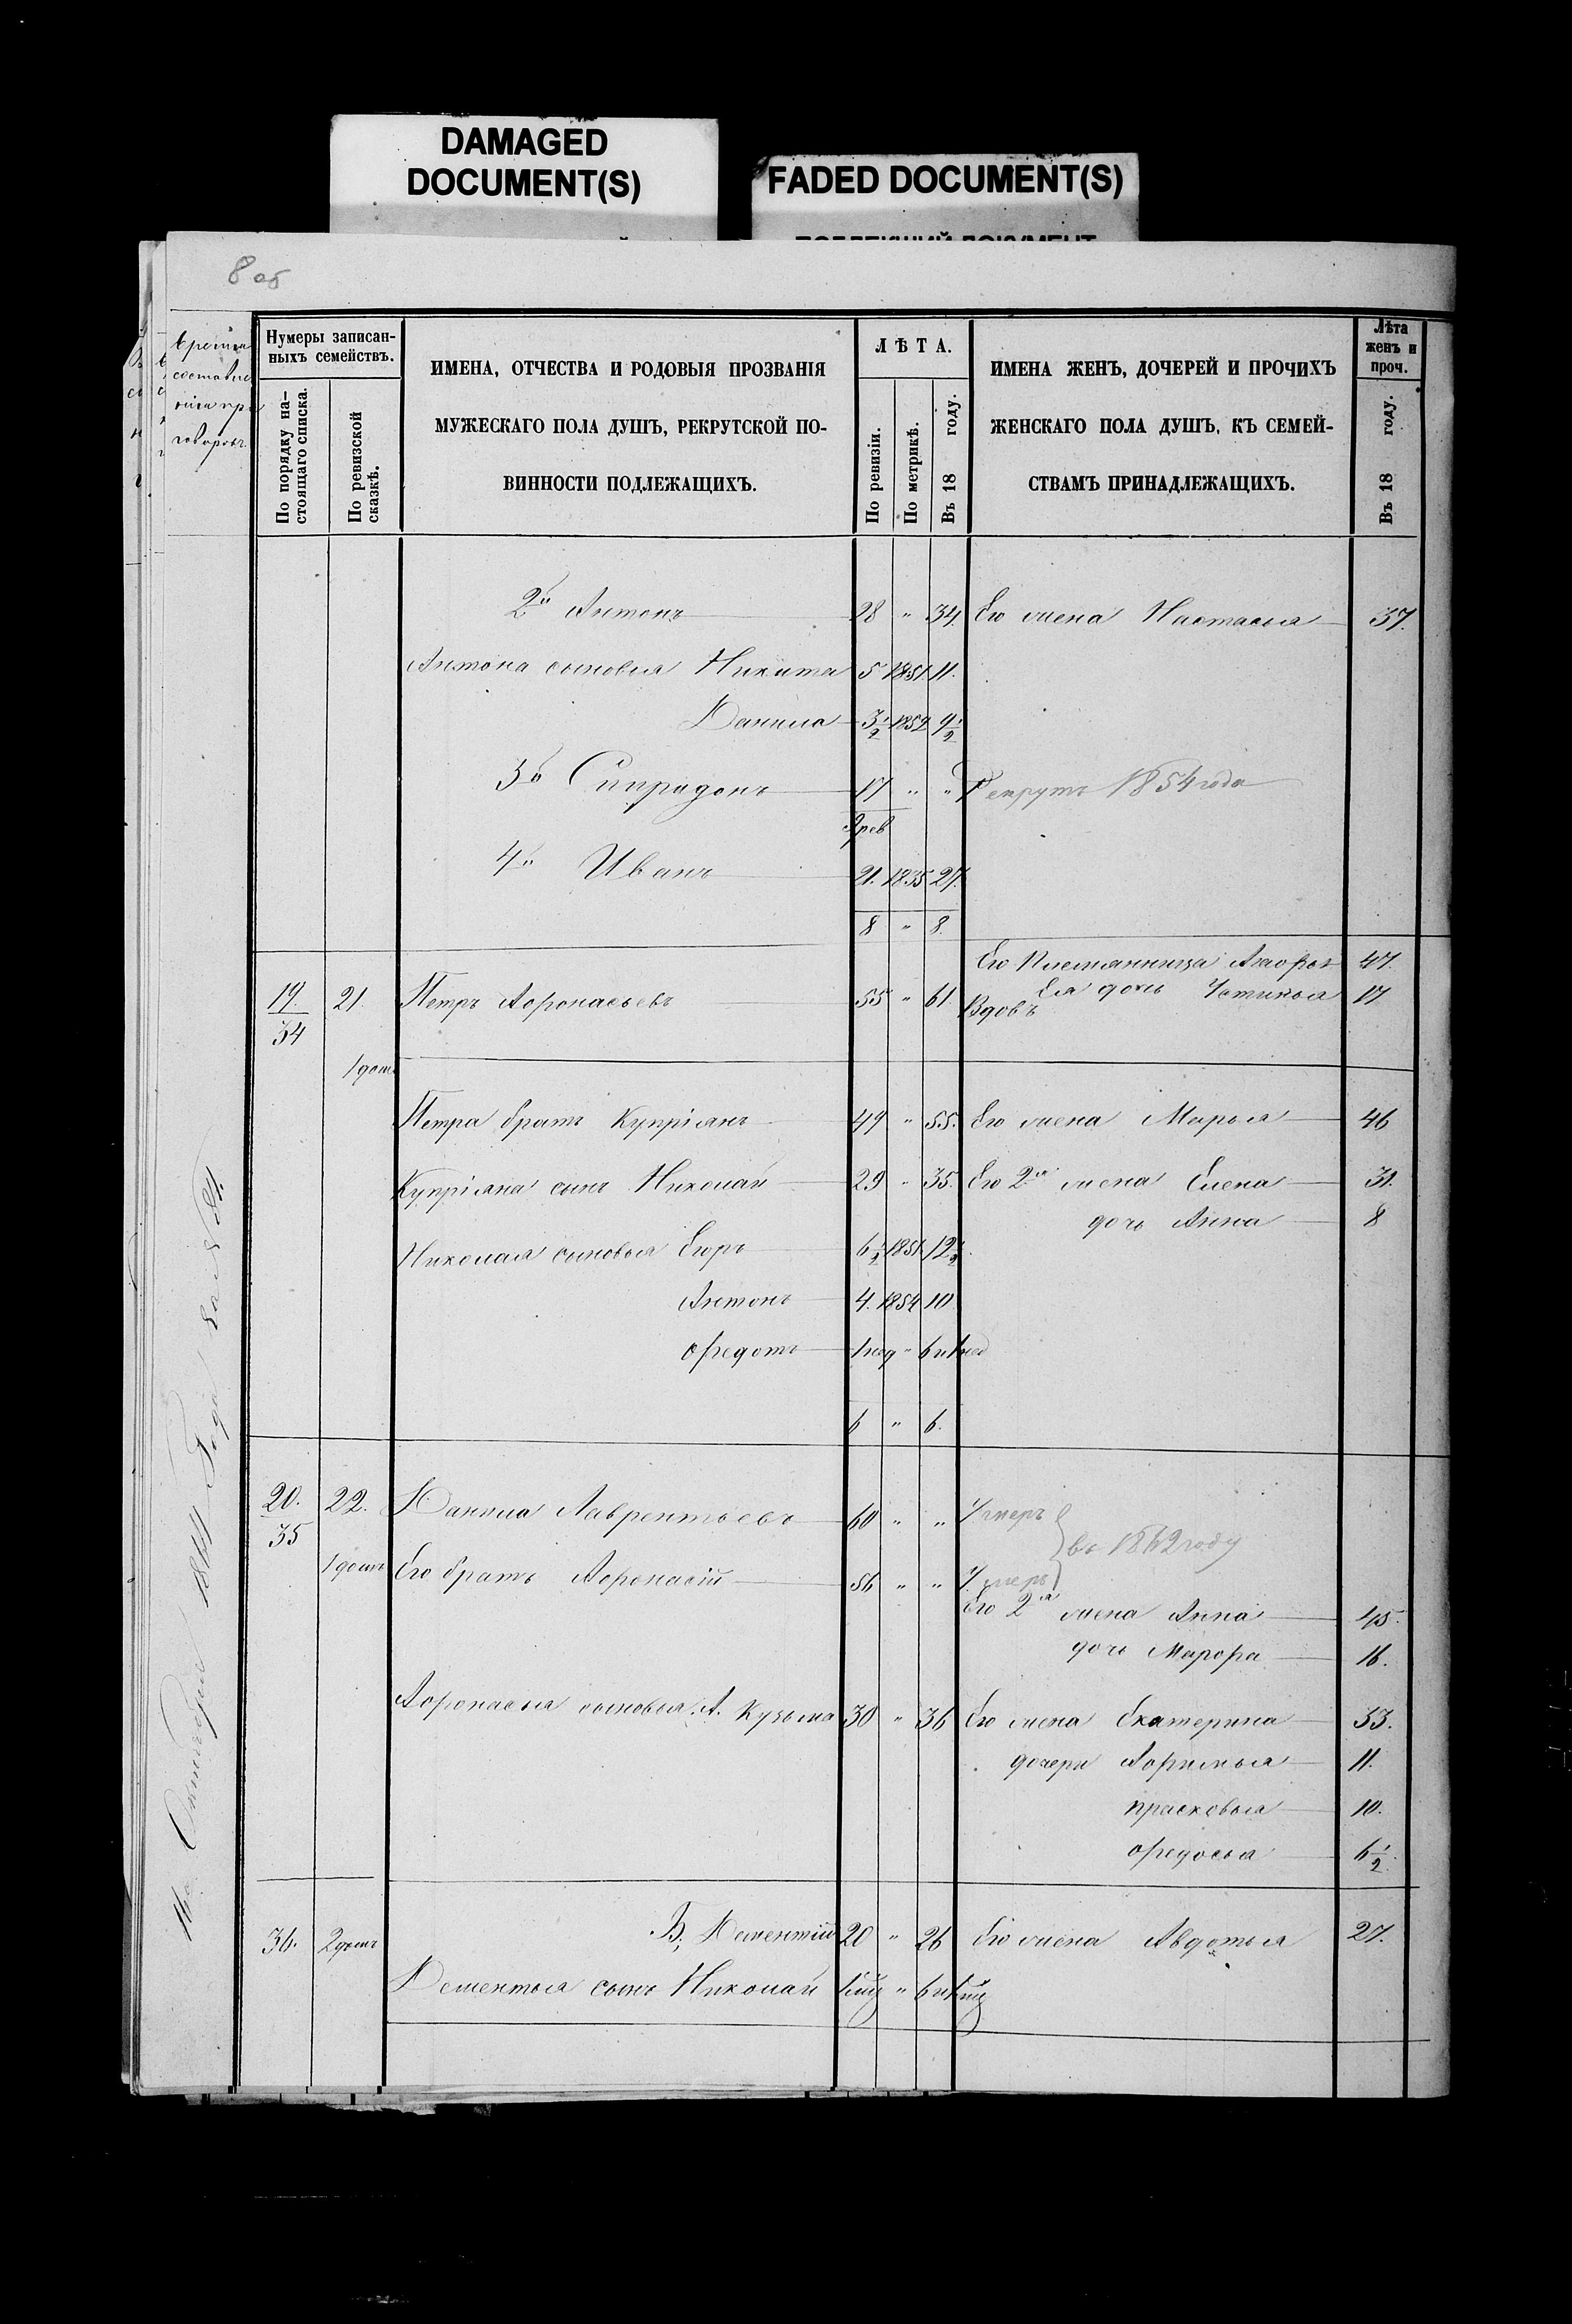 DAMAGED
DOCUMENT(S)
FADED DOCUMENT(S)
8 об
Нумеры записан-
ныхъ семействъ.
По порядку на-
стоящаго списка.
По ревизской
сказкѣ.
ИМЕНА, ОТЧЕСТВА И РОДОВЫЯ ПРОЗВАНІЯ
МУЖЕСКАГО ПОЛА ДУШЪ, РЕКРУТСКОЙ ПО-
ВИННОСТИ ПОДЛЕЖАЩИХЪ.
ЛѢТА.
По ревизіи.
По метрикѣ.
Въ 18 году.
ИМЕНА ЖЕНЪ, ДОЧЕРЕЙ И ПРОЧИХЪ
ЖЕНСКАГО ПОЛА ДУШЪ, КЪ СЕМЕЙ-
СТВАМЪ ПРИНАДЛЕЖАЩИХЪ.
Лѣта
женъ и
проч.
Въ 18 году.
2й Антонъ 28 " 34. Его жена Настасья 37.
Антона сыновья Никита 5 1851 11.
Данила 3½ 1852 9½
3й Спиридонъ 17 " " Рекрутъ 1854 года
4й Иванъ 21. 1835 27.
8 " 8.
Его племянница 47.
19. 21. Петръ Афонасьевъ 55 " 61. Ея дочь Устинья 17
34 Вдовъ
1 дом.
Петра братъ Купріянъ 49 " 55. Его жена Марья 46
Купріяна сынъ Николай 29 " 35. Его 2я жена Елена 31.
дочь Анна 8
Николая сыновья Егоръ 6½ 1851 12½
Антонъ 4. 1854 10
Федотъ 1 нед " 6 и 1 нед
6 " 6.
20. 22. Данила Лаврентьевъ 60 " " Умеръ
35 въ 1862 году
1 домъ Его братъ Афонасій 56 " " Умеръ
Его 2я жена Анна 45.
дочь Марфа 16.
Афонасья сыновья: А. Кузьма 30 " 36 Его жена Екатерина 33.
дочери Афимья 11.
Прасковья 10.
Федосья 6½
36. 2 домъ Б. Дементій 20 " 26 Его жена Авдотья 27.
Дементья сынъ Николай